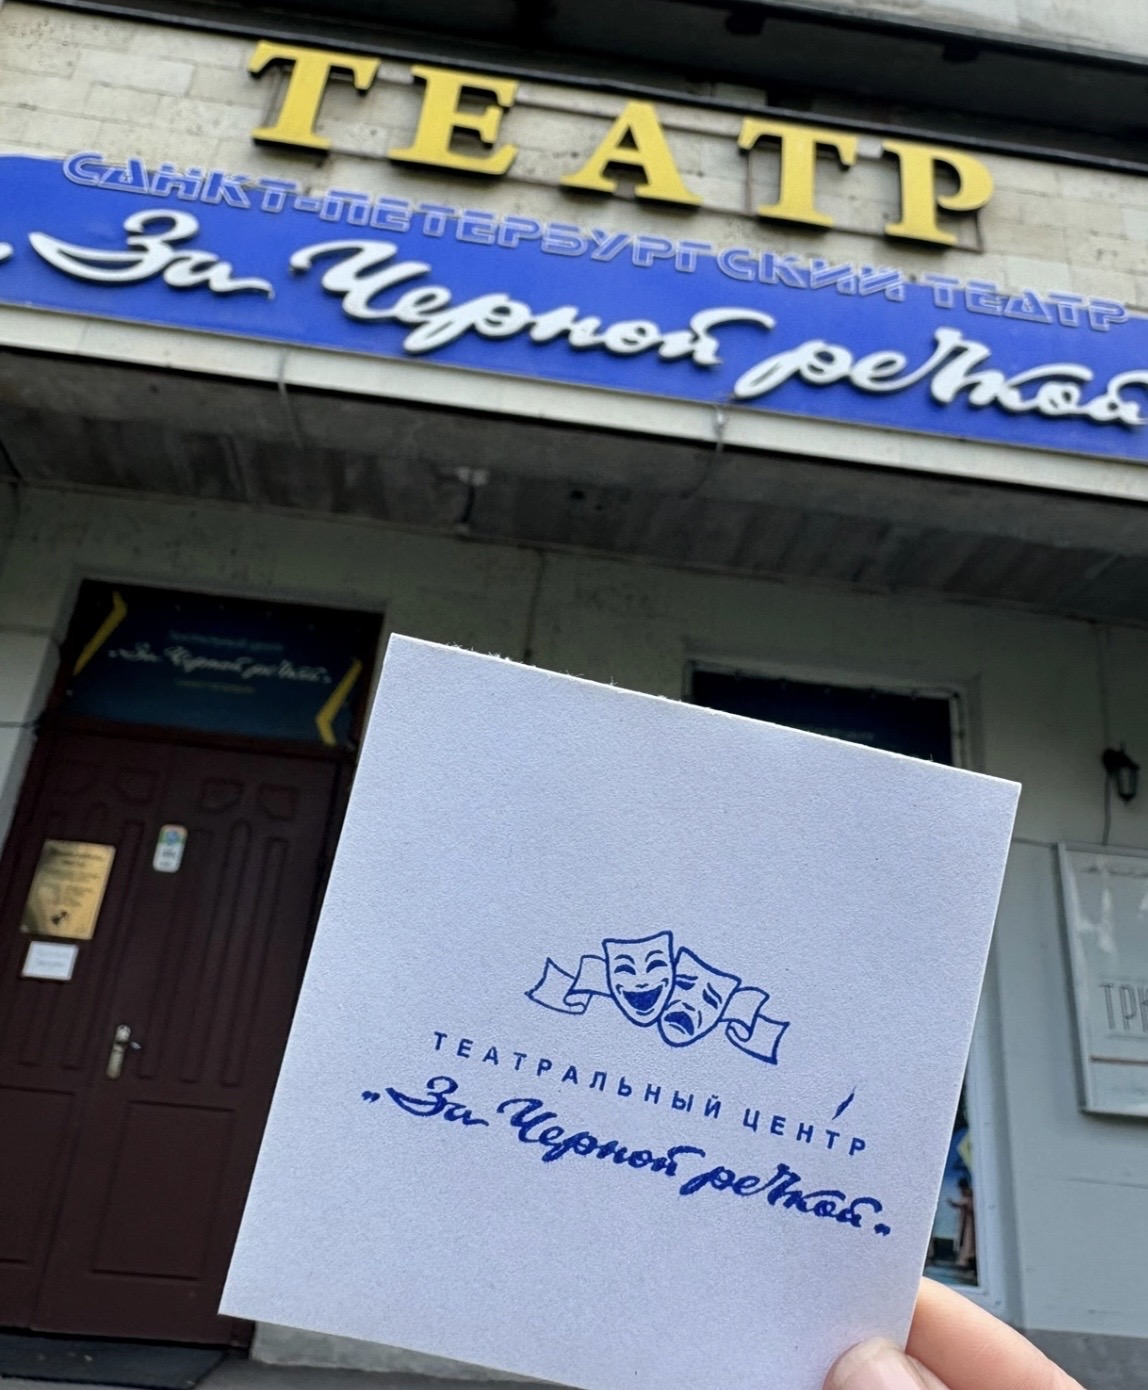 ТЕАТР
САНКТ-ПЕТЕРБУРГСКИЙ ТЕАТР
За Черной речкой
„За Черной речкой„
ТРИ
ТЕАТРАЛЬНЫЙ ЦЕНТР
„За Черной речкой„